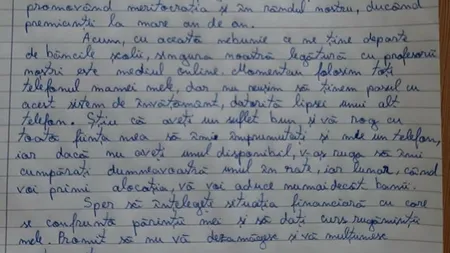 promovând meritocrația și în rândul nostru, ducând
premianții la mare an de an.
Acum, cu această nebunie ce ne ține departe
de băncile școlii, singura noastră legătură cu profesorii
noștri este mediul online. Momentan folosim toți
telefonul mamei mele, dar nu reușim să ținem pasul cu
acest sistem de învățământ, datorită lipsei unui alt
telefon. Știu că aveți un suflet bun și vă rog cu
toată ființa mea să îmi împrumutați și mie un telefon,
iar dacă nu aveți unul disponibil, v-aș ruga să îmi
cumpărați dumneavoastră unul în rate, iar lunar, când
voi primi alocația, vă voi aduce numaidecât banii.
Sper să înțelegeți situația financiară cu care
se confruntă părinții mei și să dați curs rugăminții
mele. Promit să nu vă dezamăgesc și vă mulțumesc